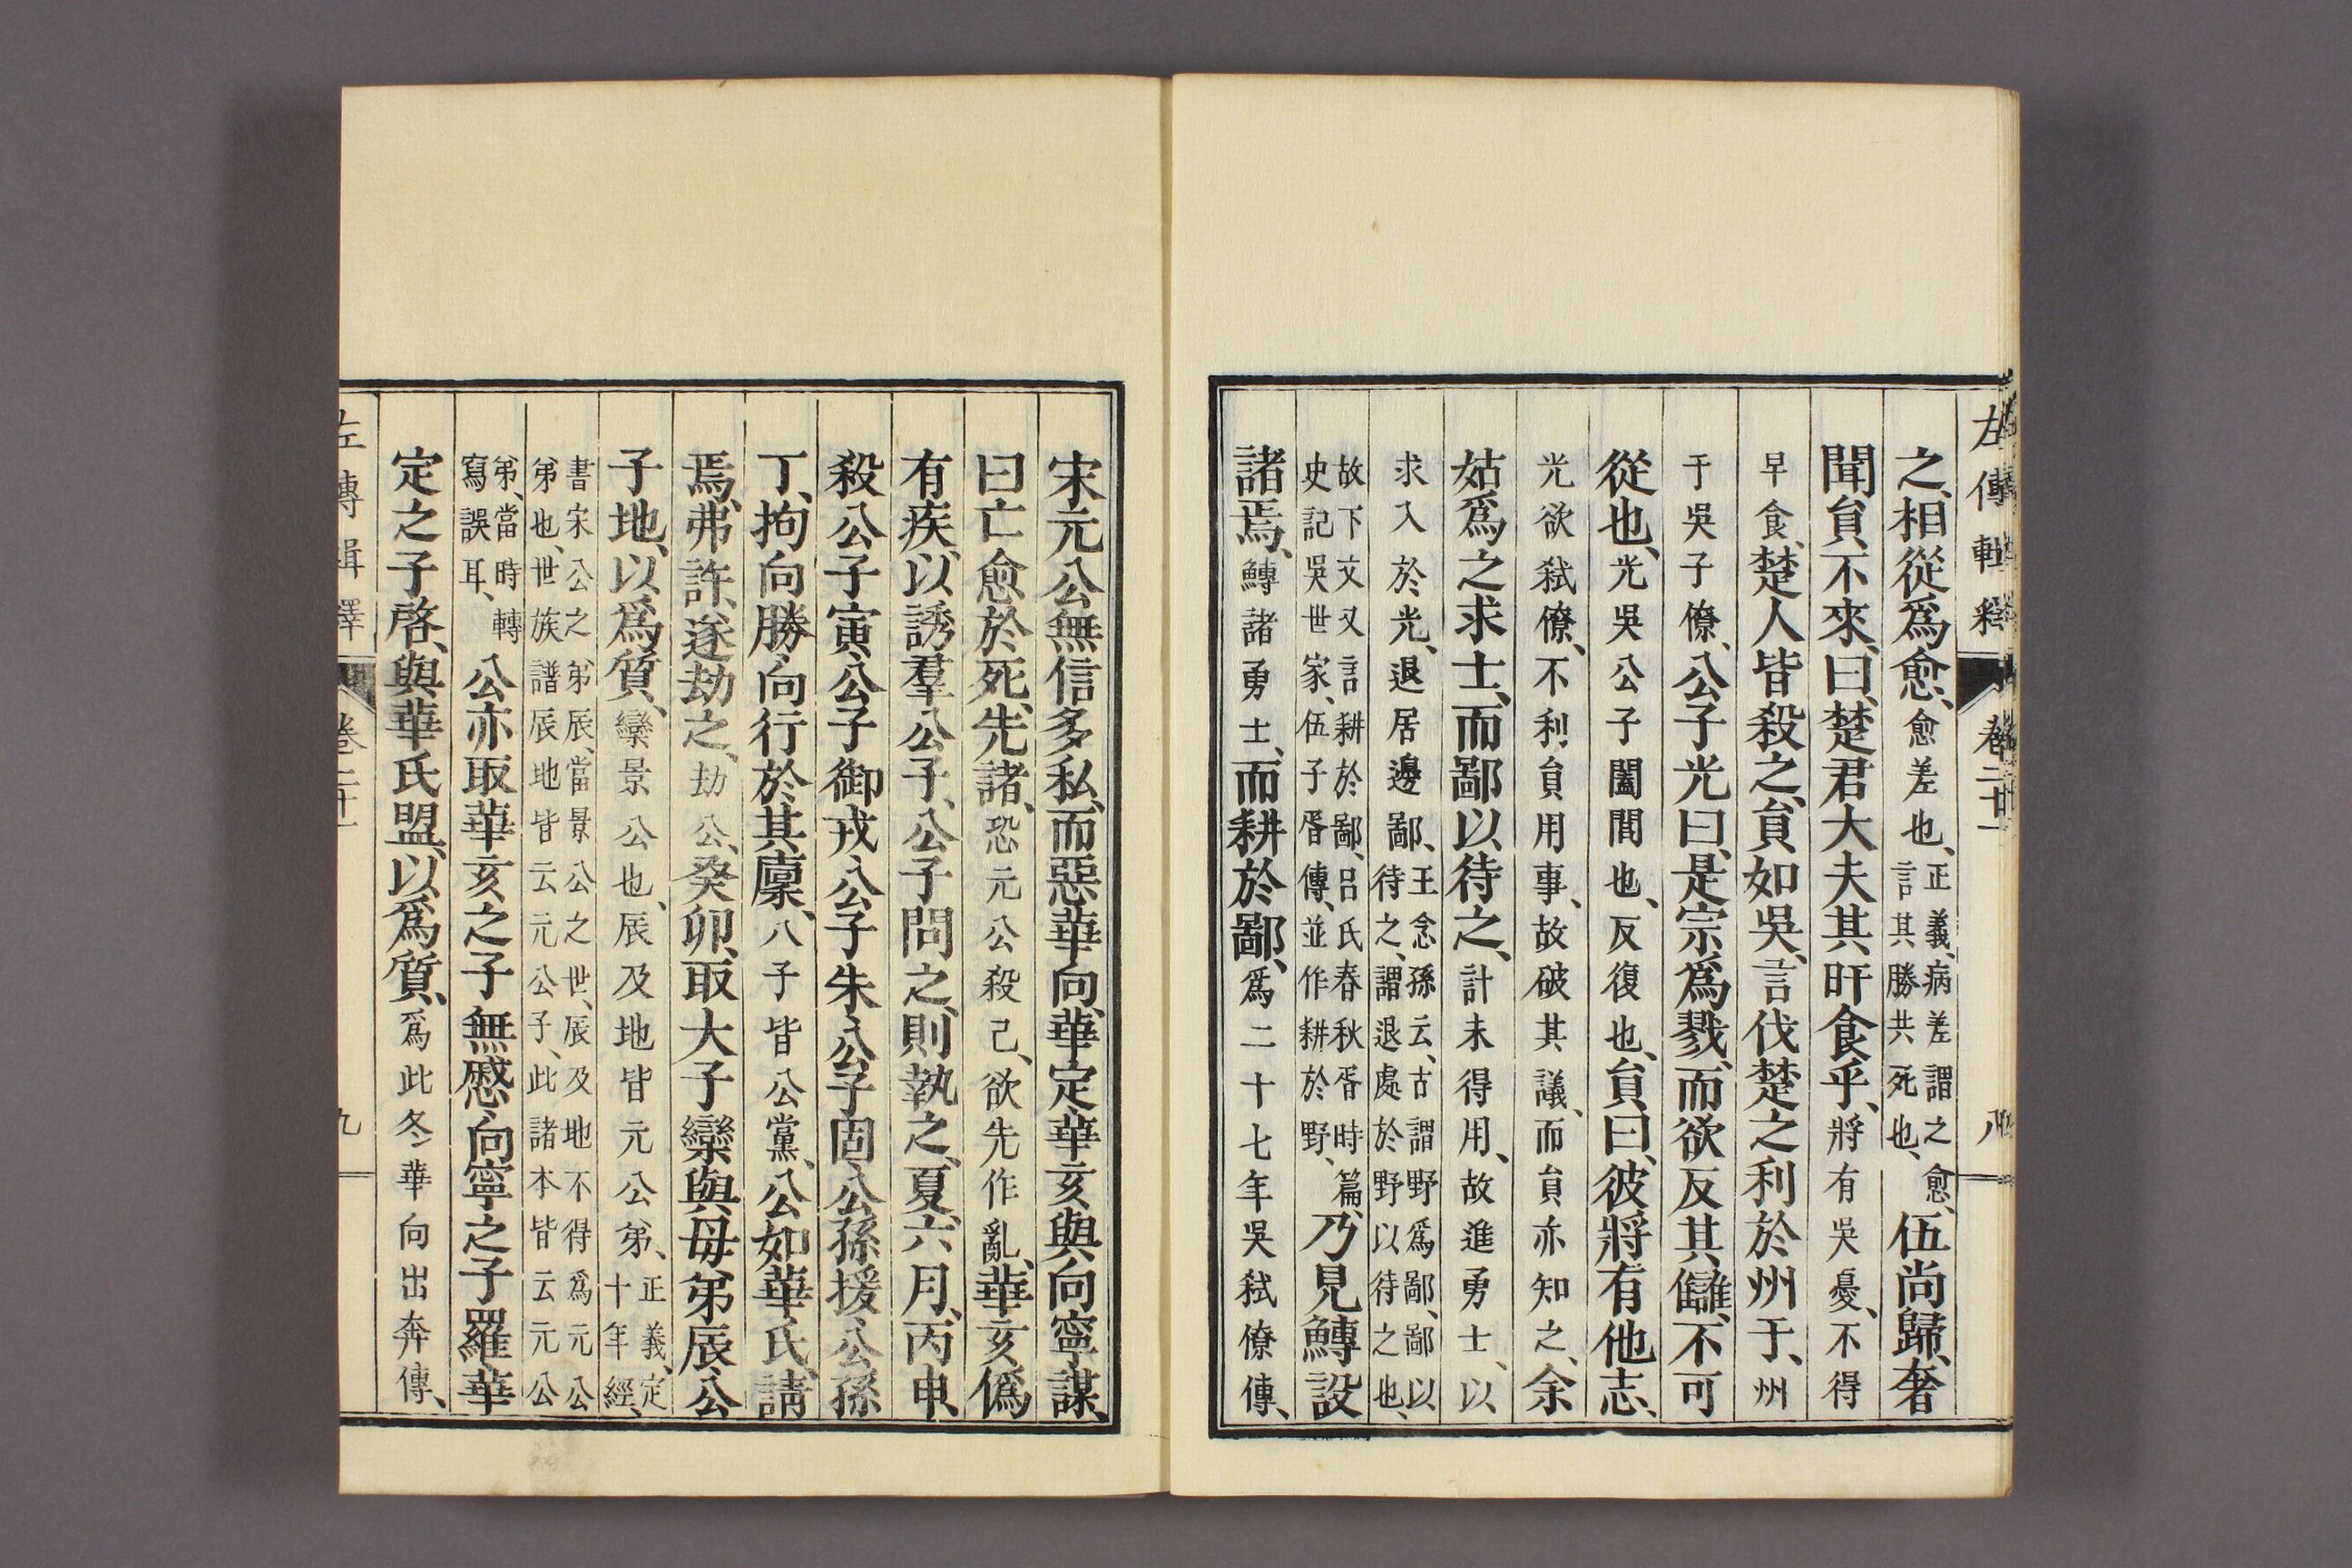 左傳輯釋 卷二十一 八
之、相從爲愈、愈差也、正義、病差謂之愈、言其勝共死也、伍尚歸、奢
聞員不來、曰、楚君大夫其旰食乎、將有吳憂、不得
早食、楚人皆殺之、員如吳、言伐楚之利於州于、州
于吳子僚、公子光曰、是宗爲戮、而欲反其讎、不可
從也、光吳公子闔閭也、反復也、員曰、彼將有他志、
光欲弒僚、不利員用事、故破其議、而員亦知之、余
姑爲之求士、而鄙以待之、計未得用、故進勇士、以
求入於光、退居邊鄙、王念孫云、古謂野爲鄙、鄙以待之、謂退處於野以待之也、
故下文又言耕於鄙、呂氏春秋胥時篇、史記吳世家、伍子胥傳、並作耕於野、乃見鱄設
諸焉、鱄諸勇士、而耕於鄙、爲二十七年吳弒僚傳、
宋元公無信多私、而惡華向、華定華亥與向寧謀、
曰亡愈於死、先諸、恐元公殺己、欲先作亂、華亥僞
有疾、以誘羣公子、公子問之、則執之、夏、六月、丙申、
殺公子寅、公子御戎、公子朱、公子固、公孫援、公孫
丁、拘向勝、向行於其廩、八子皆公黨、公如華氏、請
焉、弗許、遂劫之、劫公、癸卯、取大子欒與母弟辰、公
子地、以爲質、欒景公也、辰及地皆元公弟、正義、定十年經、
書宋公之弟辰、當景公之世、辰及地不得爲元公弟也、世族譜辰地皆云元公子、此諸本皆云元公
弟、當時轉寫誤耳、公亦取華亥之子無慼、向寧之子羅、華
定之子啓、與華氏盟、以爲質、爲此冬華向出奔傳、
左傳輯釋 卷二十一 九